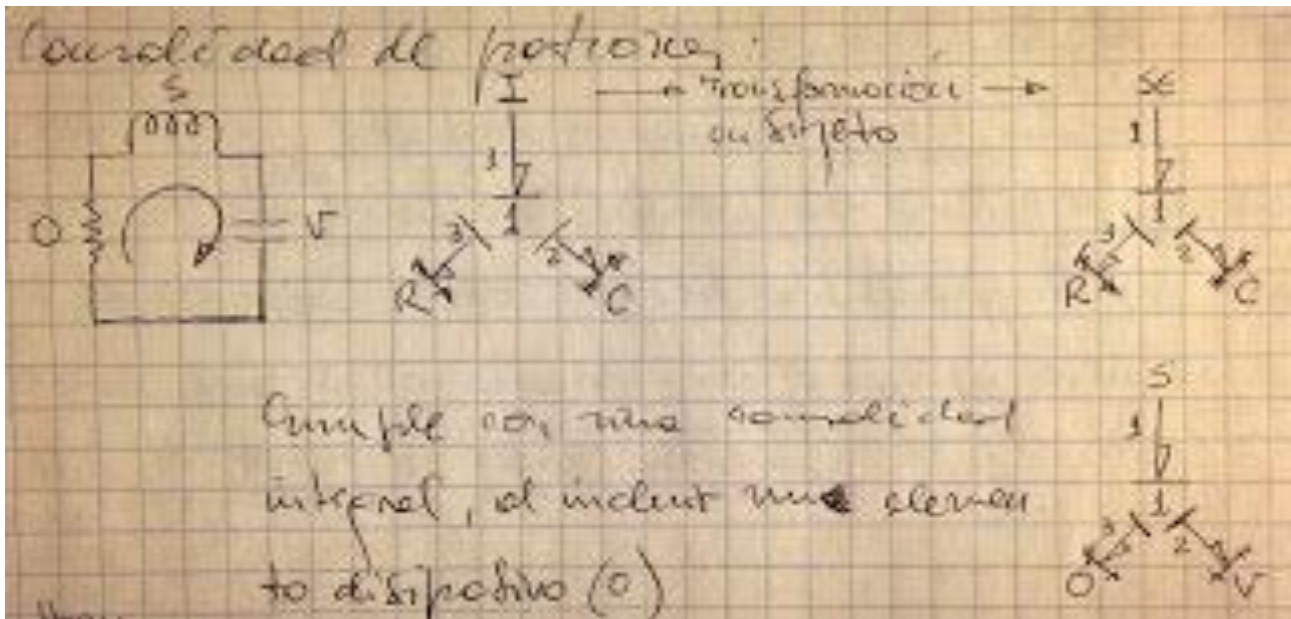 Causalidad de patrones:
S
O
V
I
1
1
3
2
R
C
→ Transformación →
en sujeto
SE
1
1
3
2
R
C
S
1
1
3
2
O
V
Cumple con una causalidad
integral, al incluir un elemen
to disipativo (O)